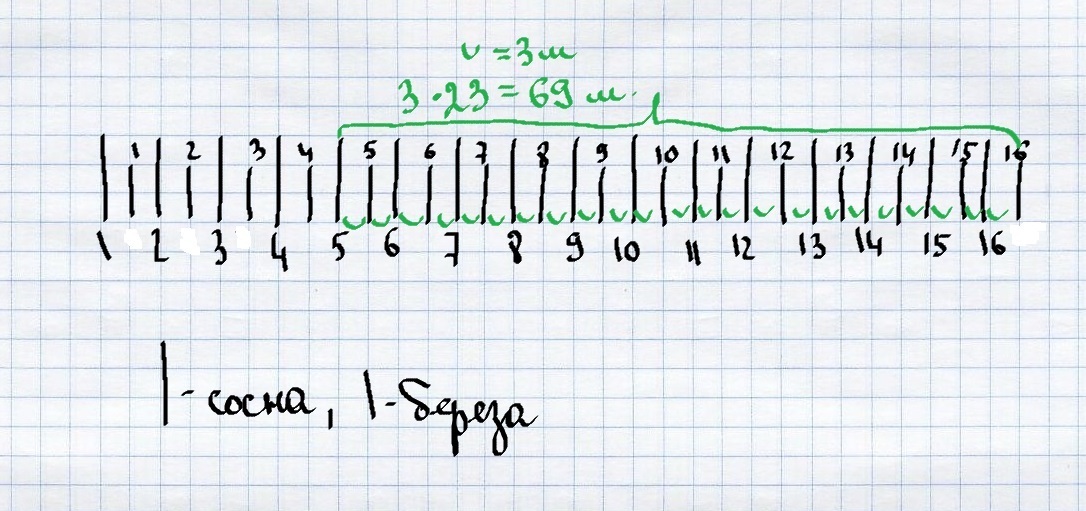 ∪ = 3 м
3 · 23 = 69 м.
1 2 3 4 5 6 7 8 9 10 11 12 13 14 15 16
1 2 3 4 5 6 7 8 9 10 11 12 13 14 15 16
| - сосна, | - береза